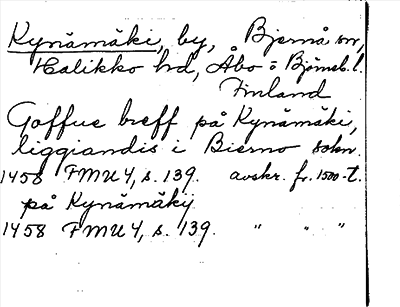 Kynämäki, by, Bjernå sn,
Halikko hd, Åbo o Björneb. l.
Finland
Goffue breff på Kynämäki,
liggiandis i Bierno sokn.
1458 FMU 4, s. 139. avskr. fr. 1500-t.
på Kynämäky
1458 FMU 4, s. 139. " " "